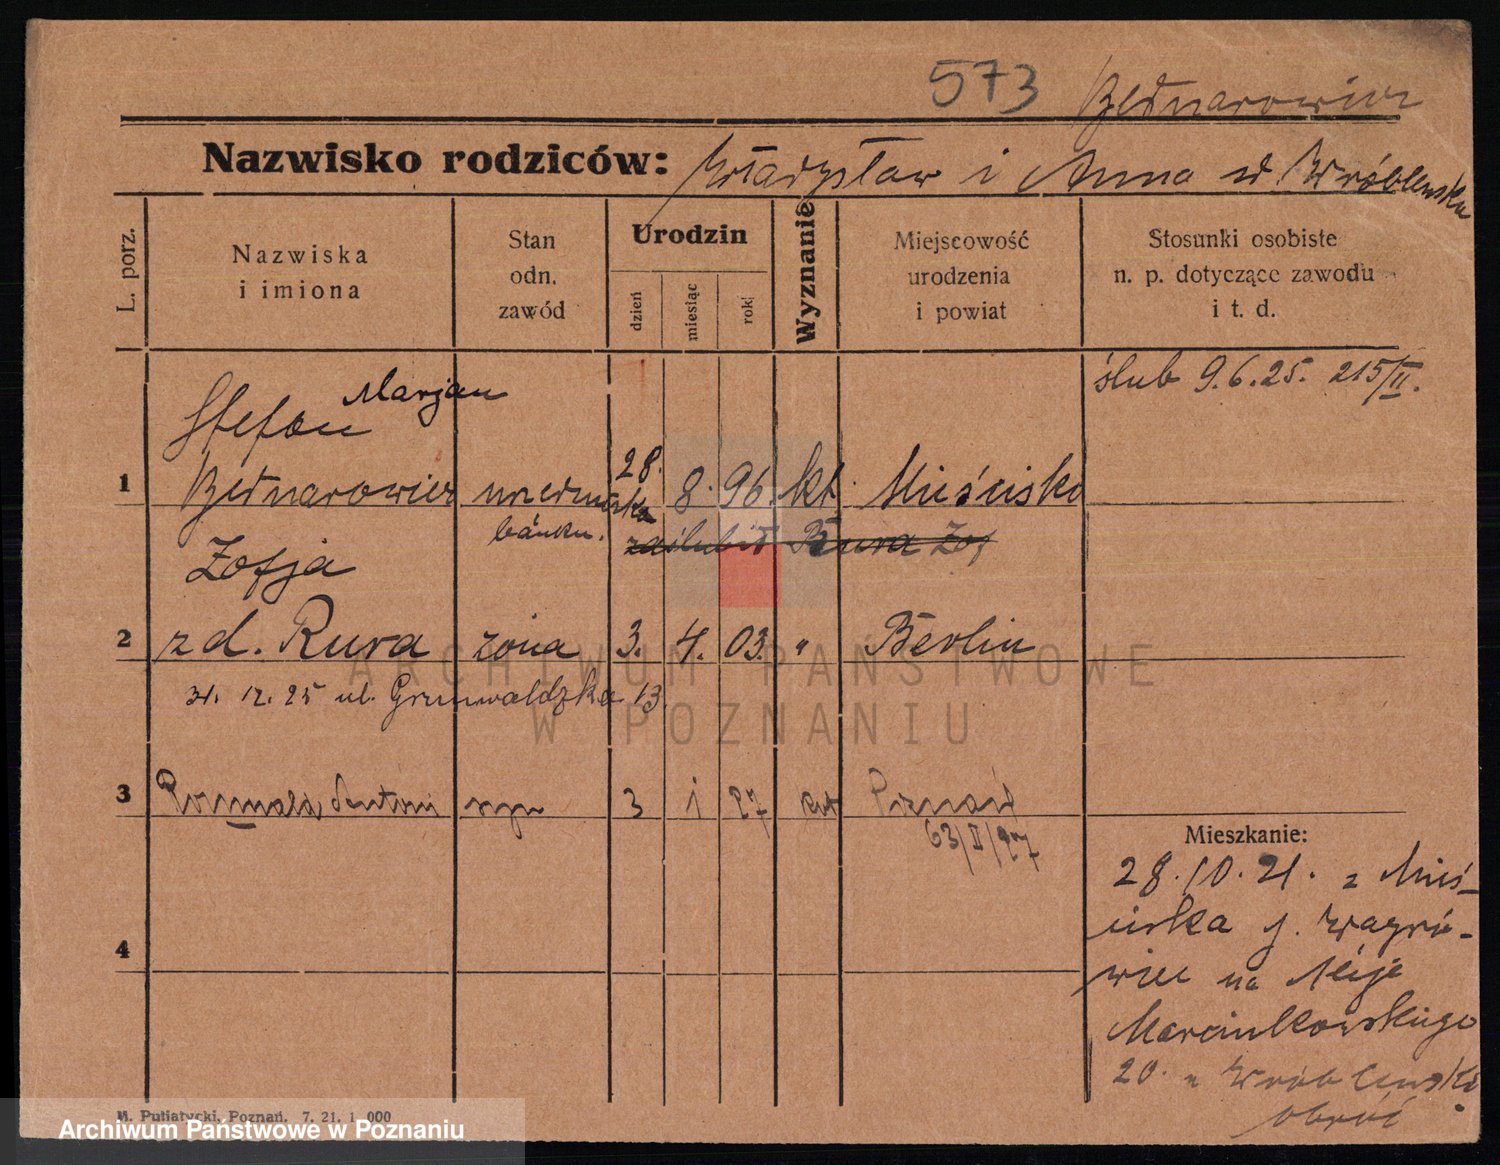 573 Bednarowicz
Nazwisko rodziców: Władysław i Anna d. Wróblewska
L. porz.
Nazwiska
i imiona
Stan
odn.
zawód
Urodzin
dzień
miesiąc
rok
Wyznanie
Miejscowość
urodzenia
i powiat
Stosunki osobiste
n. p. dotyczące zawodu
i t. d.
ślub 9.6.25. 215/II.
Stefan Marjan
1 Bednarowicz 28. 8. 96. kt. Mieścisko
banku. zaślubił Rura Zof
Zofja
2 z d. Rura żona 3. 4. 03. " Berlin
31. 12. 25 ul. Grunwaldzka 13.
3 Romuald Antoni syn 3 1 27 kat Poznań
63/II/27
Mieszkanie:
28.10.21. z Mieś-
ciska p. Wągró-
wiec na Aleje
Marcinkowskiego
20. u Wróblewski
obróć
4
M. Putiatycki, Poznań. 7. 21. 1 000
ARCHIWUM PAŃSTWOWE
W POZNANIU
Archiwum Państwowe w Poznaniu